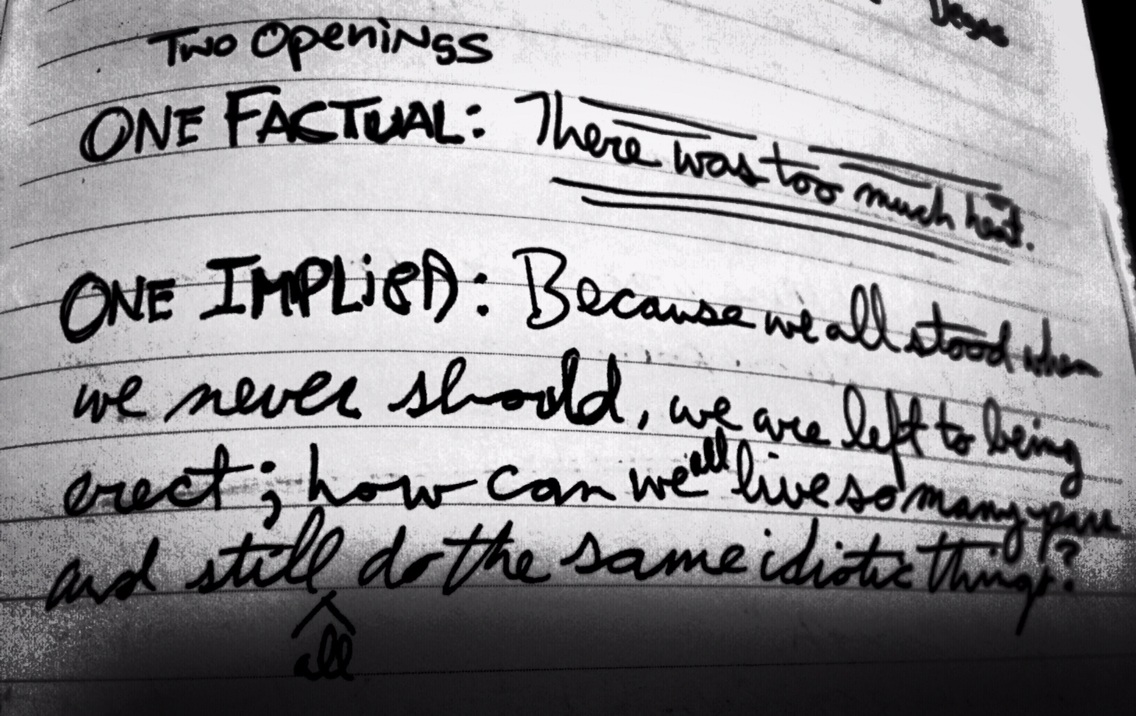 Two Openings
ONE FACTUAL: There was too much heat.
ONE IMPLIED: Because we all stood when
we never should, we are left to being
erect; how can we all live so many years
and still do the same idiotic things?
all